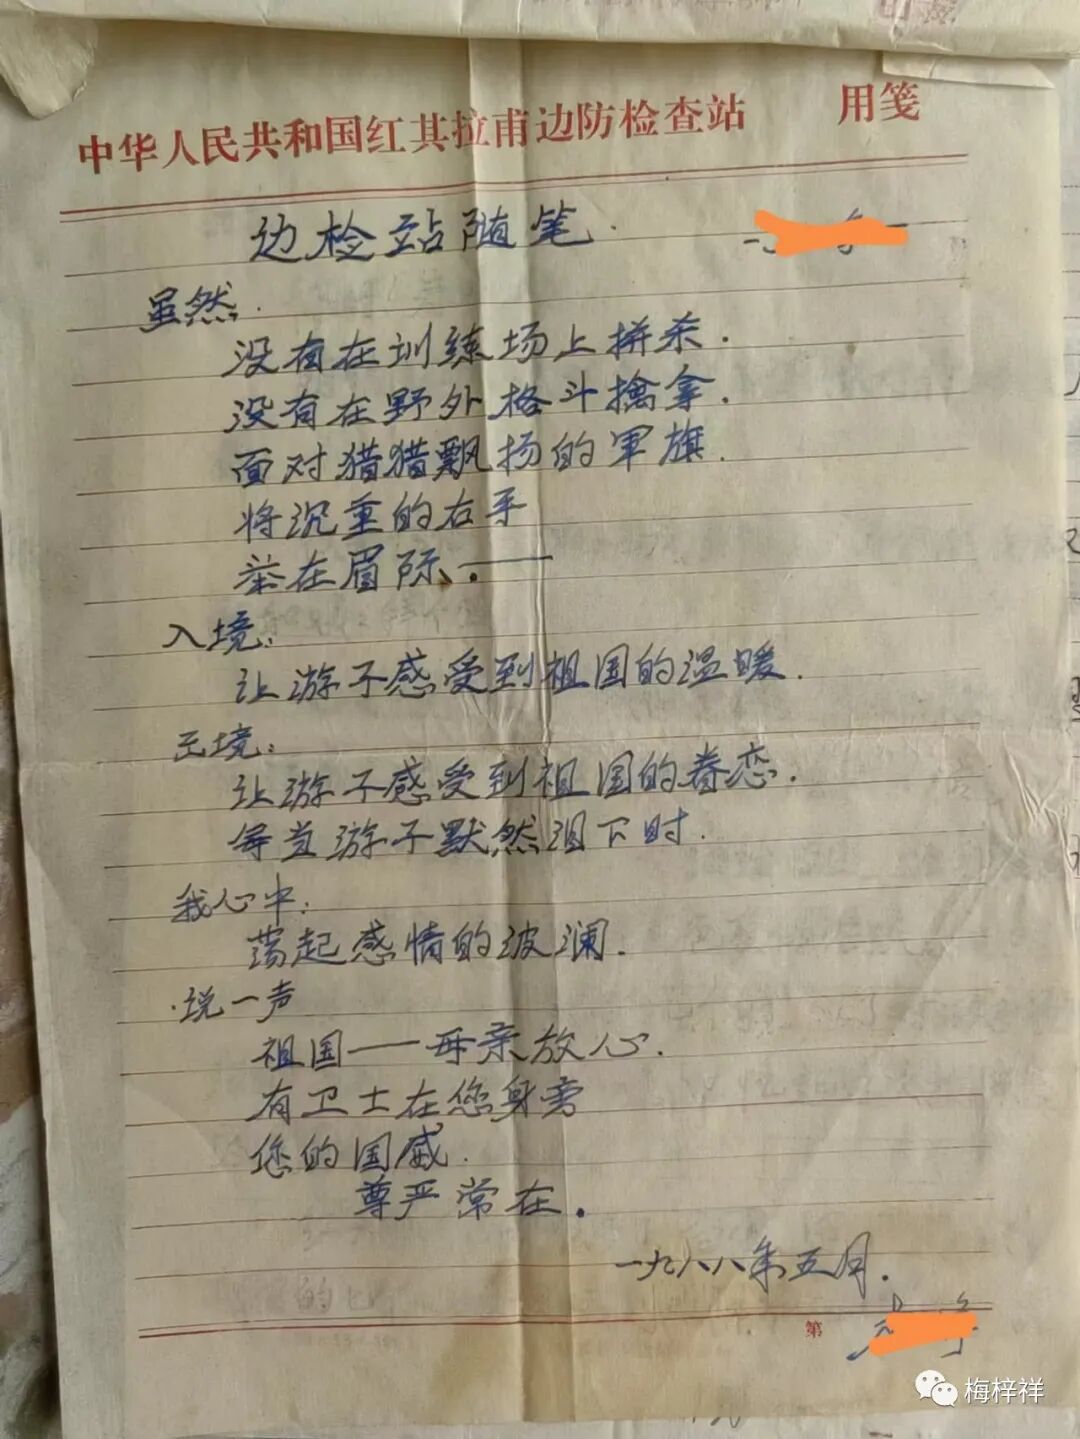 中华人民共和国红其拉甫边防检查站 用笺
边检站随笔.
虽然.
没有在训练场上拼杀.
没有在野外格斗擒拿.
面对猎猎飘扬的军旗.
将沉重的右手
举在眉际、.——
入境:
让游子感受到祖国的温暖.
出境:
让游子感受到祖国的眷恋.
每当游子默然泪下时.
我心中:
荡起感情的波澜.
·说一声
祖国——母亲放心.
有卫士在您身旁
您的国威.
尊严常在.
一九八八年五月.
第
梅梓祥